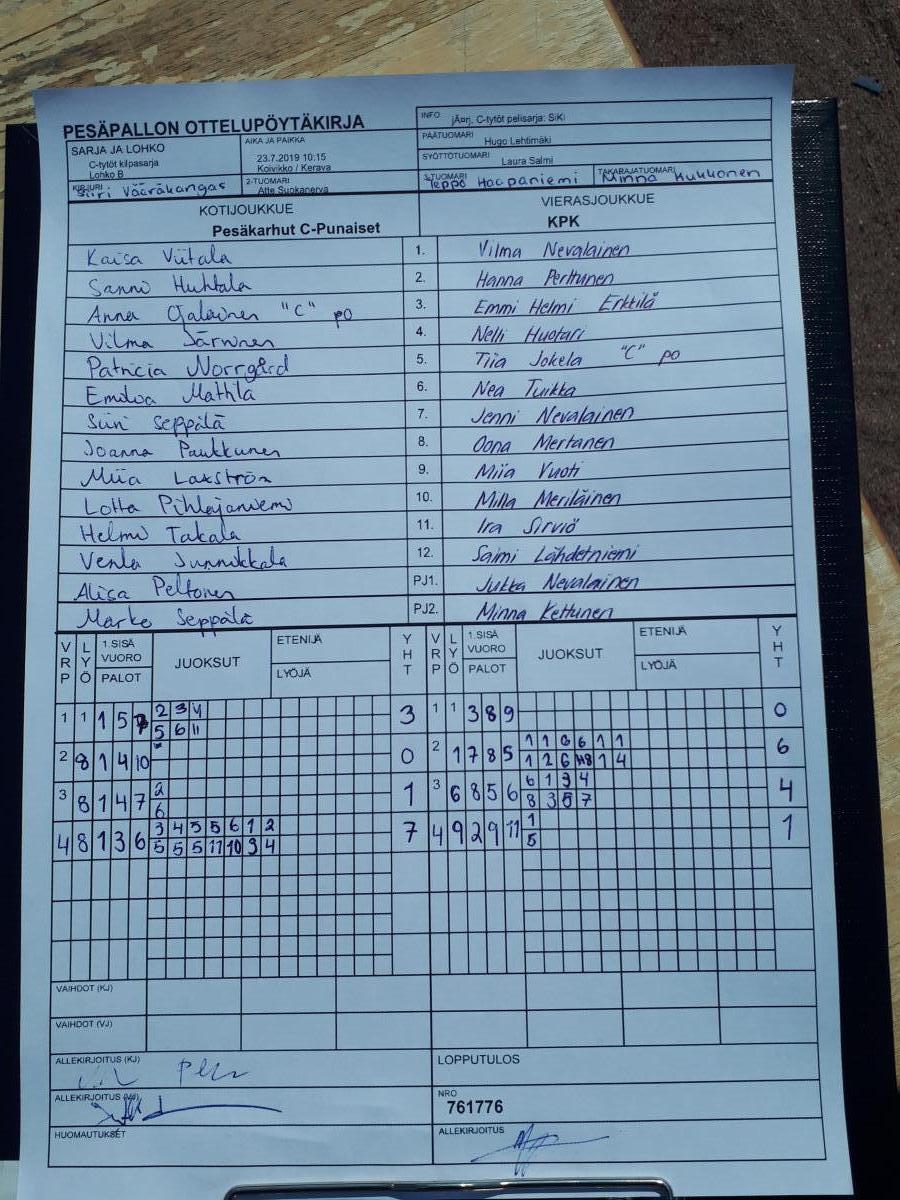 PESÄPALLON OTTELUPÖYTÄKIRJA
INFO jÄ¤rj, C-tytöt pelisarja: SiKi
PÄÄTUOMARI Hugo Lehtimäki
SYÖTTÖTUOMARI Laura Salmi
SARJA JA LOHKO
C-tytöt kilpasarja
Lohko B
AIKA JA PAIKKA
23.7.2019 10:15
Koivikko / Kerava
KIRJURI Siiri Vääräkangas
2-TUOMARI Atte Suokanerva
3-TUOMARI Teppo Haapaniemi
TAKARAJATUOMARI Minna Kukkonen
KOTIJOUKKUE VIERASJOUKKUE
Pesäkarhut C-Punaiset KPK
Kaisa Viitala 1. Vilma Nevalainen
Sanni Huhtala 2. Hanna Perttunen
Anna Ojalainen "C" po 3. Emmi Helmi Erkkilä
Vilma Järvinen 4. Nelli Huotari
Patricia Norrgård 5. Tiia Jokela "C" po
Emilia Mattila 6. Nea Tuikka
Siiri Seppälä 7. Jenni Nevalainen
Joanna Paukkunen 8. Oona Mertanen
Miia Laxström 9. Miia Vuoti
Lotta Pihlajaniemi 10. Milla Meriläinen
Helmi Takala 11. Ira Sirviö
Venla Junnikkala 12. Saimi Lähdetniemi
Alisa Peltonen PJ1. Jukka Nevalainen
Marko Seppälä PJ2. Minna Kettunen
VRP LYÖ 1.SISÄ VUORO PALOT JUOKSUT ETENIJÄ LYÖJÄ YHT VRP LYÖ 1.SISÄ VUORO PALOT JUOKSUT ETENIJÄ LYÖJÄ YHT
1 1 1 5 7 2 3 4 3 1 1 3 8 9 0
5 6 11
2 8 1 4 10 0 2 1 7 8 5 1 1 6 6 1 1 6
1 2 6 1 4
3 8 1 4 7 2 1 3 6 8 5 6 6 1 3 4 4
6 8 3 7
4 8 1 3 6 3 4 5 5 6 1 2 7 4 9 2 9 11 1 1
5 5 5 11 10 3 4 5
VAIHDOT (KJ)
VAIHDOT (VJ)
ALLEKIRJOITUS (KJ) LOPPUTULOS
ALLEKIRJOITUS (VJ) NRO
761776
HUOMAUTUKSET ALLEKIRJOITUS